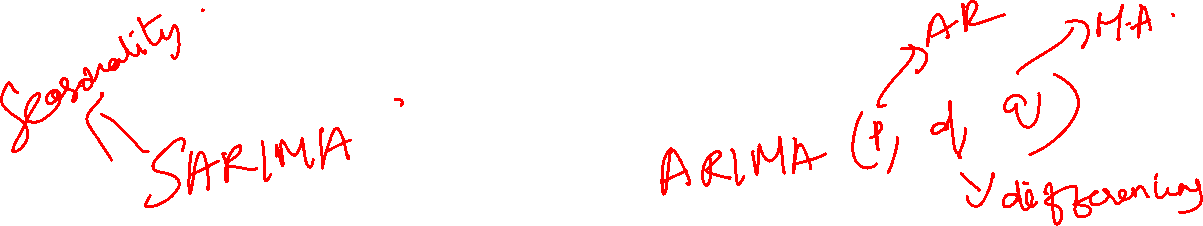 Seasonality
SARIMA
AR
M.A.
ARIMA (P, d, q)
differencing